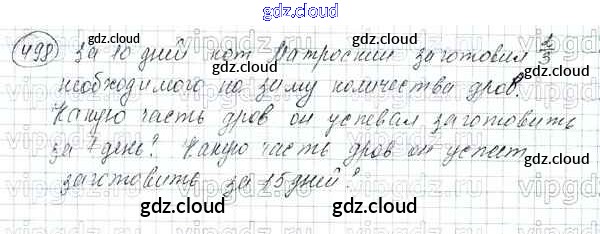 gdz.cloud
498 За 10 дней кот Матроскин заготовил 2/3
необходимого на зиму количества дров.
Какую часть дров он успевал заготовить
за 1 день? Какую часть дров он успеет
заготовить за 15 дней?
gdz.cloud gdz.cloud